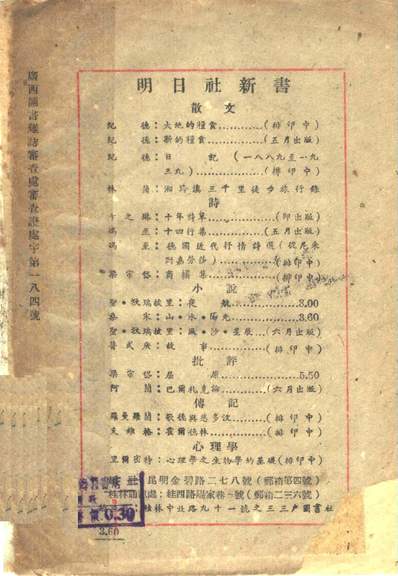 廣西圖書雜誌審查處審查證處字第一八四號
明日社新書
散文
紀 德：大地的糧食…………(排印中)
紀 德：新的糧食…………(五月出版)
紀 德：日 記 (一八八九至一九
三九)…………(排印中)
林 蒲：湘黔滇三千里徒步旅行錄
詩
卞之琳：十年詩草…………(即出版)
馮 至：十四行集…………(五月出版)
馮 至：德國近代抒情詩選
(排印中)
梁宗岱：商籟集…………(排印中)
小說
聖・狄瑞披里：夜航…………3.00
卷 宋：山・水・陽光…………3.60
聖・狄瑞披里：風・沙・星辰…(六月出版)
故 事…………(排印中)
批評
梁宗岱：屈 原…………5.50
阿 蘭：巴爾扎克論…………(六月出版)
傳記
羅曼羅蘭：歌德與悲多汶…(排印中)
夫維格：霍爾德林…………(排印中)
心理學
里爾密特：心理學之生物學的基礎(排印中)
昆明金碧路二七八號(郵箱第四號)
桂林 處：桂四路 家巷 號(郵箱二三六號)
桂林中北路九十一號之三三戶圖書社
0.30
3.60